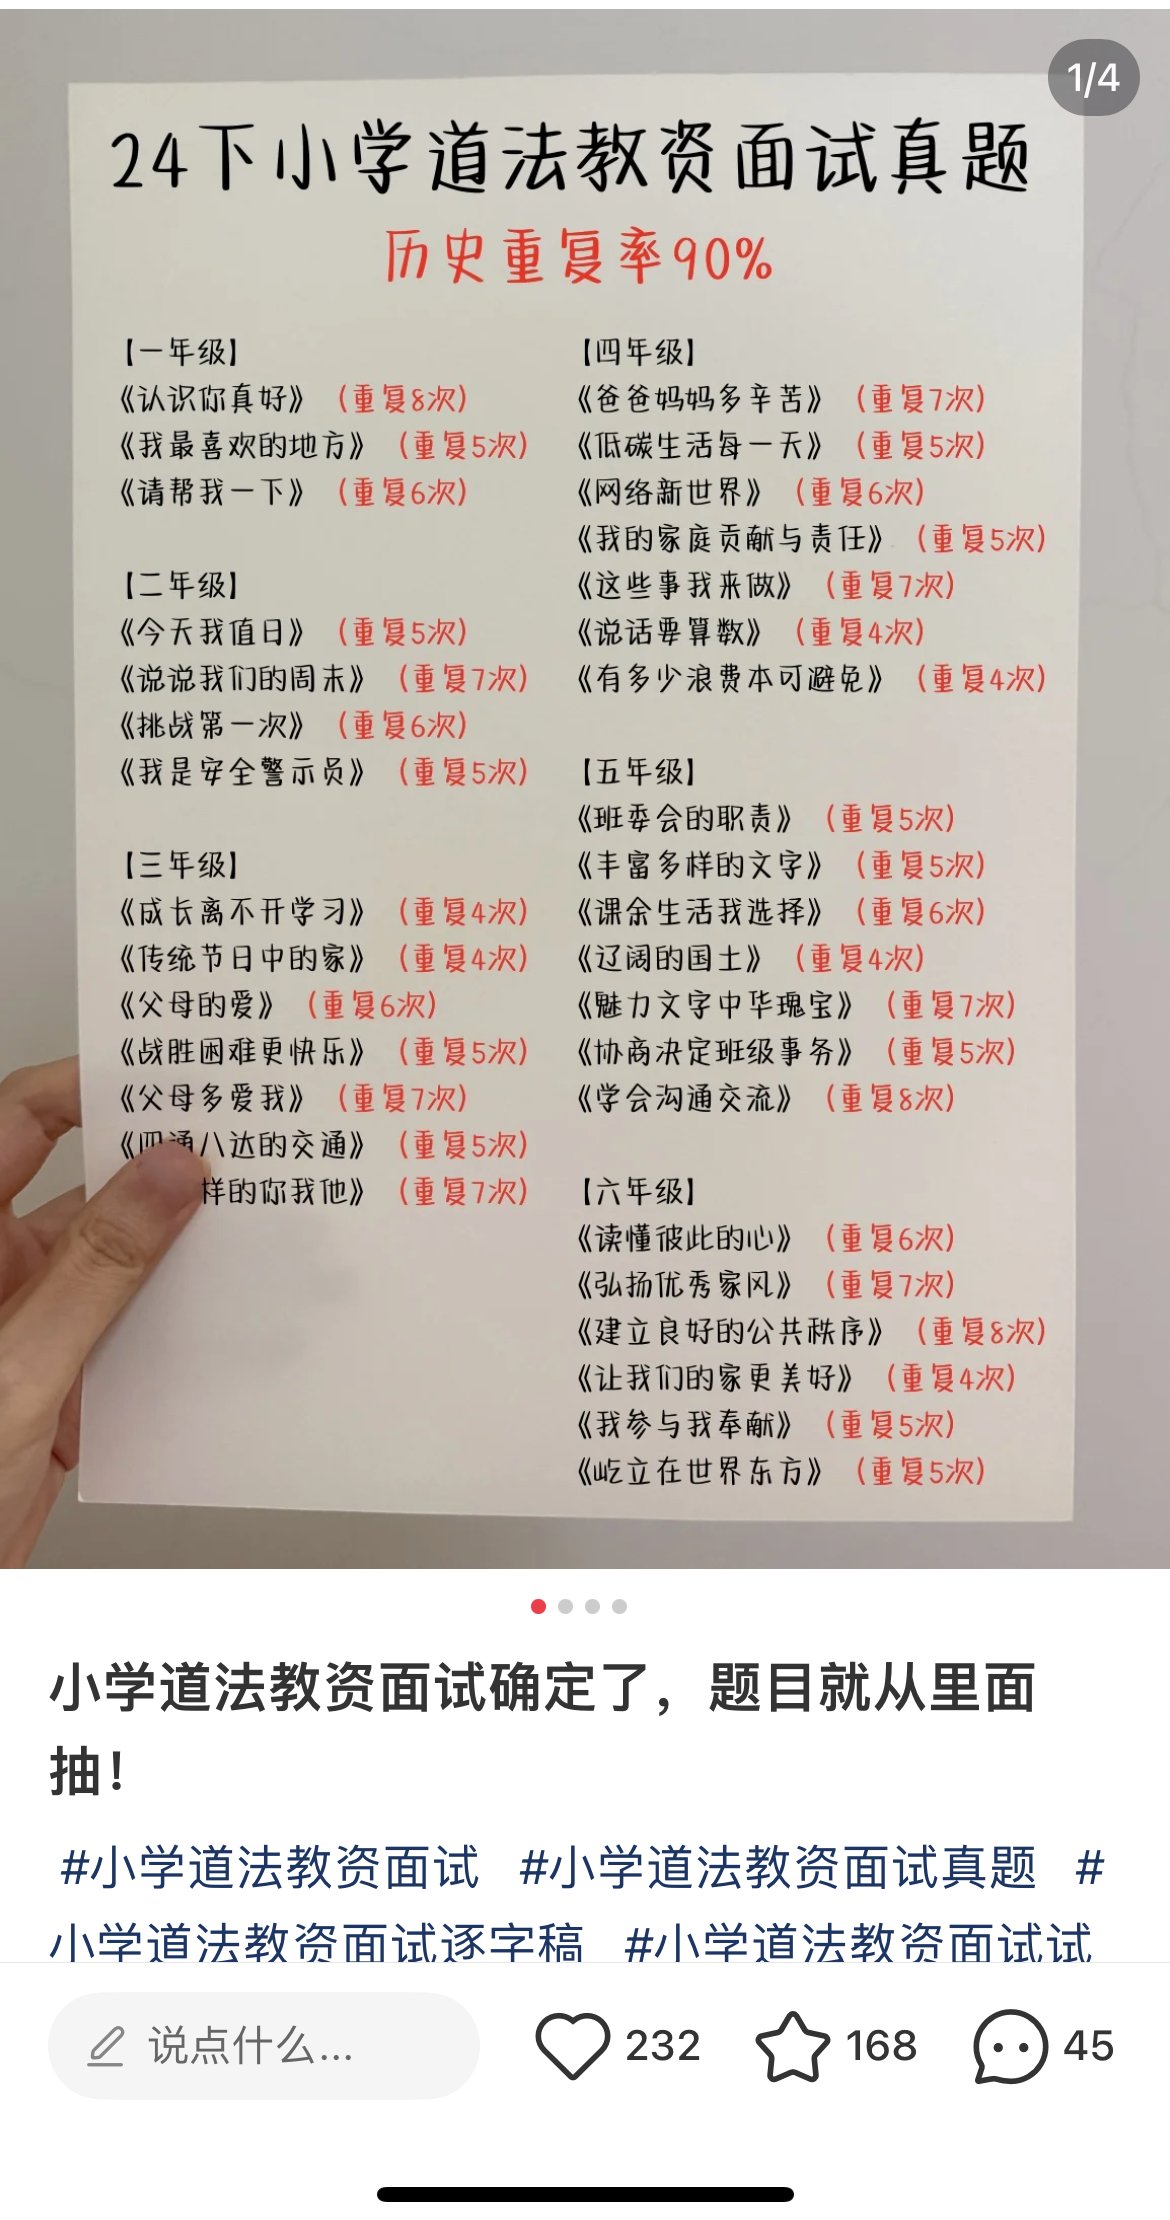 1/4
24下小学道法教资面试真题
历史重复率90%
【一年级】
《认识你真好》（重复8次）
《我最喜欢的地方》（重复5次）
《请帮我一下》（重复6次）
【二年级】
《今天我值日》（重复5次）
《说说我们的周末》（重复7次）
《挑战第一次》（重复6次）
《我是安全警示员》（重复5次）
【三年级】
《成长离不开学习》（重复4次）
《传统节日中的家》（重复4次）
《父母的爱》（重复6次）
《战胜困难更快乐》（重复5次）
《父母多爱我》（重复7次）
《四通八达的交通》（重复5次）
样的你我他》（重复7次）
【四年级】
《爸爸妈妈多辛苦》（重复7次）
《低碳生活每一天》（重复5次）
《网络新世界》（重复6次）
《我的家庭贡献与责任》（重复5次）
《这些事我来做》（重复7次）
《说话要算数》（重复4次）
《有多少浪费本可避免》（重复4次）
【五年级】
《班委会的职责》（重复5次）
《丰富多样的文字》（重复5次）
《课余生活我选择》（重复6次）
《辽阔的国土》（重复4次）
《魅力文字中华瑰宝》（重复7次）
《协商决定班级事务》（重复5次）
《学会沟通交流》（重复8次）
【六年级】
《读懂彼此的心》（重复6次）
《弘扬优秀家风》（重复7次）
《建立良好的公共秩序》（重复8次）
《让我们的家更美好》（重复4次）
《我参与我奉献》（重复5次）
《屹立在世界东方》（重复5次）
小学道法教资面试确定了，题目就从里面
抽！
#小学道法教资面试 #小学道法教资面试真题 #
小学道法教资面试逐字稿 #小学道法教资面试试
说点什么...
232
168
45